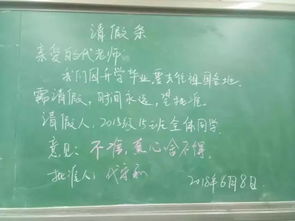 请假条
亲爱的代老师
我们因升学毕业,要去往祖国各地.
需请假,时间永远,望批准.
请假人:2015级15班全体同学.
意见:不准,熏心舍不得.
批准人:代
2018年6月8日.